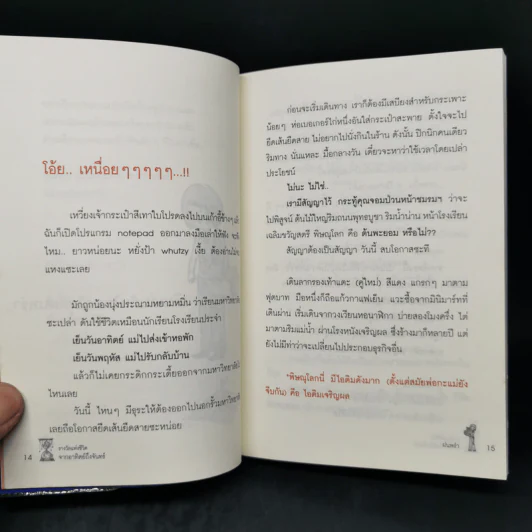 โอ้ย.. เหนื่อยๆๆๆๆๆ...!!
เหวี่ยงเจ้ากระเป๋าสีเทาใบโปรดลงไปบนเก้าอี้ข้างๆ
ฉันก็เปิดโปรแกรม notepad ออกมาลงมือเล่าให้ฟัง
ไหม.. ยาวหน่อยนะ หยั่งป้า whutzy เงี้ย ต้องอ่าน
แหงแซะเลย
มักถูกน้องนุ่งประณามหยามหมิ่น ว่าเรียนมหาวิทยาลัย
ซะเปล่า ดันใช้ชีวิตเหมือนนักเรียนโรงเรียนประจำ
เย็นวันอาทิตย์ แม่ไปส่งเข้าหอพัก
เย็นวันพฤหัส แม่ไปรับกลับบ้าน
แล้วก็ไม่เคยกระดิกกระเดี้ยออกจากมหาวิทยาลัยไป
ไหนเลย
วันนี้ ไหนๆ มีธุระให้ต้องออกไปนอกรั้วมหาวิทยาลัย
เลยถือโอกาสยืดเส้นยืดสายซะหน่อย
14
รางวัลแห่งชีวิต
จากอาทิตย์ถึงจันทร์
ก่อนจะเริ่มเดินทาง เราก็ต้องมีเสบียงสำหรับกระเพาะ
น้อยๆ ห่อเบอเกอร์ไก่หนึ่งอันใส่กระเป๋าสะพาย ตั้งใจจะไป
ยืดเส้นยืดสาย ไม่อยากไปนั่งกินในร้าน ดังนั้น ปิกนิกคนเดียว
ริมทาง นั่นแหละ มื้อกลางวัน เดี๋ยวจะหาว่าใช้เวลาโดยเปล่า
ประโยชน์
ไม่นะ ไม่ใช่..
เรามีสัญญาไว้ กระทู้คุณจอมป่วนหน้าชมรมฯ ว่าจะ
ไปพิสูจน์ ต้นไม้ใหญ่ริมถนนพุทธบูชา ริมน้ำน่าน หน้าโรงเรียน
เฉลิมขวัญสตรี พิษณุโลก คือ ต้นพะยอม หรือไม่??
สัญญาต้องเป็นสัญญา วันนี้ สบโอกาสซะที
เดินลากรองเท้าแตะ (คู่ใหม่) สีแดง แกรกๆ มาตาม
ฟุตบาท มือหนึ่งก็ถือแก้วกาแฟเย็น แวะซื้อจากมินิมาร์ทที่
เดินผ่าน เริ่มเดินจากวงเวียนหอนาฬิกา บ่ายสองโมงครึ่ง ได้
มาตามริมแม่น้ำ ผ่านโรงหนังเจริญผล ซึ่งร้างมาก็หลายปี แต่
ยังไม่มีท่าว่าจะเปลี่ยนไปประกอบธุรกิจอื่น
*พิษณุโลกนี่ มีไอติมดังมาก (ตั้งแต่สมัยพ่อกะแม่ยัง
จีบกัน) คือ ไอติมเจริญผล
15